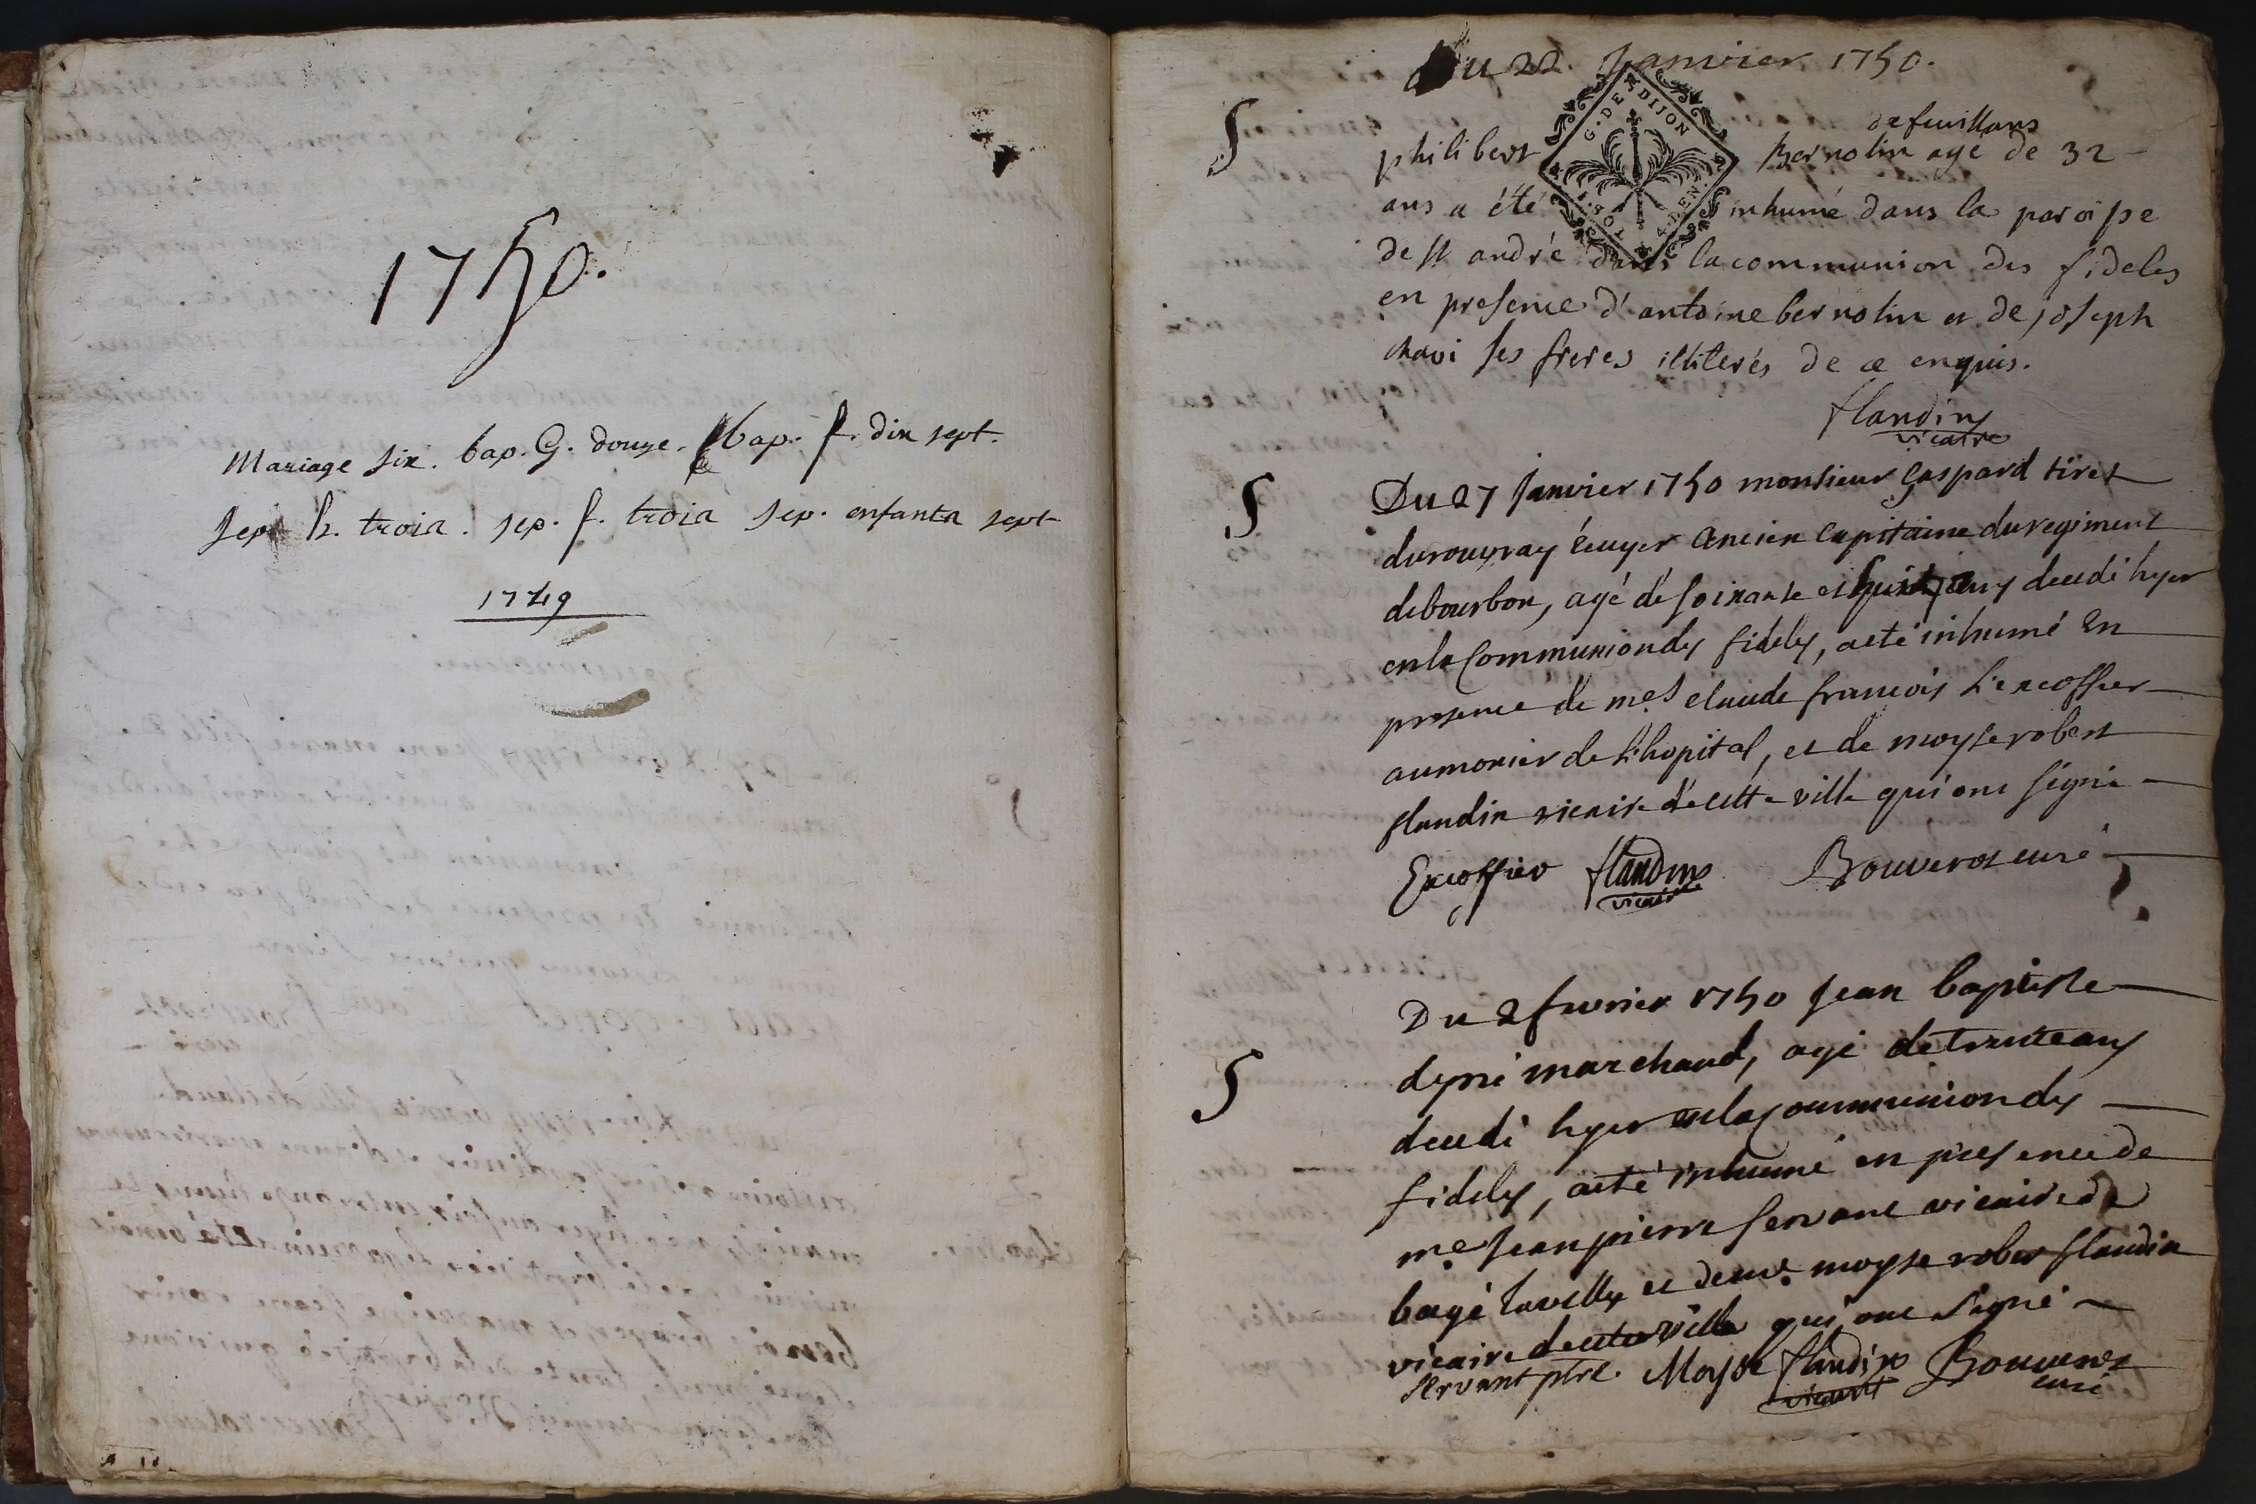 1750.
Mariage six. bap. G. douze. bap. f. dix sept.
sep. h. trois. sep. f. trois sep. enfants sept
1749
Du 22. Janvier 1750.
G. DE DIJON
1. SOL 4. DEN.
S
de feuillans
philibert Bernolin agé de 32
ans a été inhumé dans la paroisse
de st andré dans la communion des fideles
en presence d'antoine bernolin et de joseph
chavi ses freres illiterés de ce enquis.
flandin
vicaire
S
Du 27 janvier 1750 monsieur gaspard tiret
durouvray écuyer ancien capitaine du regiment
de bourbon, agé de soixante et huit ans decedé hyer
en la Communion des fideles, a eté inhumé en
presence de mes claude françois L'excoffier
aumonier de l'hopital, et de moyse robert
flandin vicaire de cette ville qui ont signé
Excoffier flandin Bouverot curé
vicaire
S
Du 2 fevrier 1750 Jean baptiste
marchand, agé de trente ans
decedé hyer en la Communion des
fideles, a eté inhumé en presence de
me Jean pierre servant vicaire de
bagé la ville et de me moyse robert flandin
vicaire de cette ville qui ont signé
servant ptre. Moyse flandin Bouverot
vicaire curé